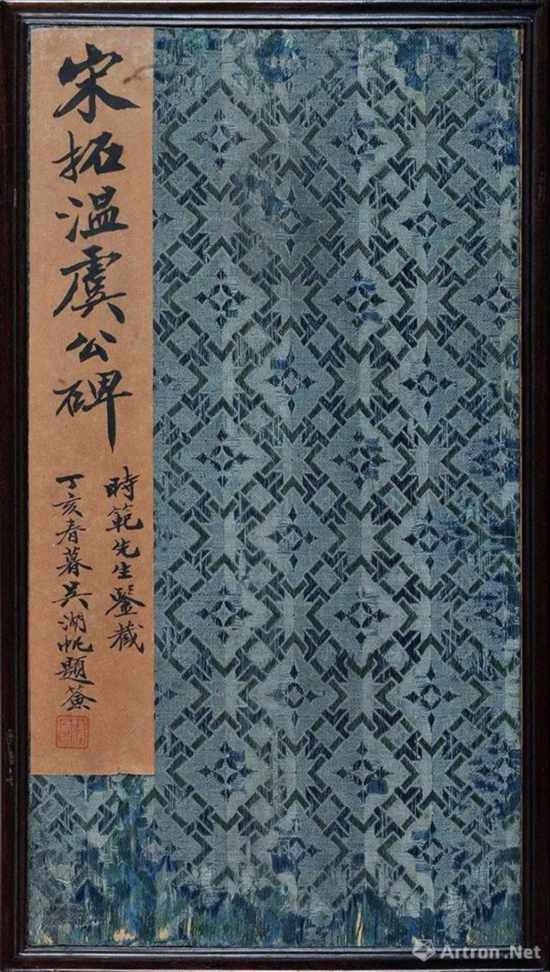 宋拓温虞公碑
時範先生鑒藏
丁亥春暮吴湖帆題籤
Artron.Net